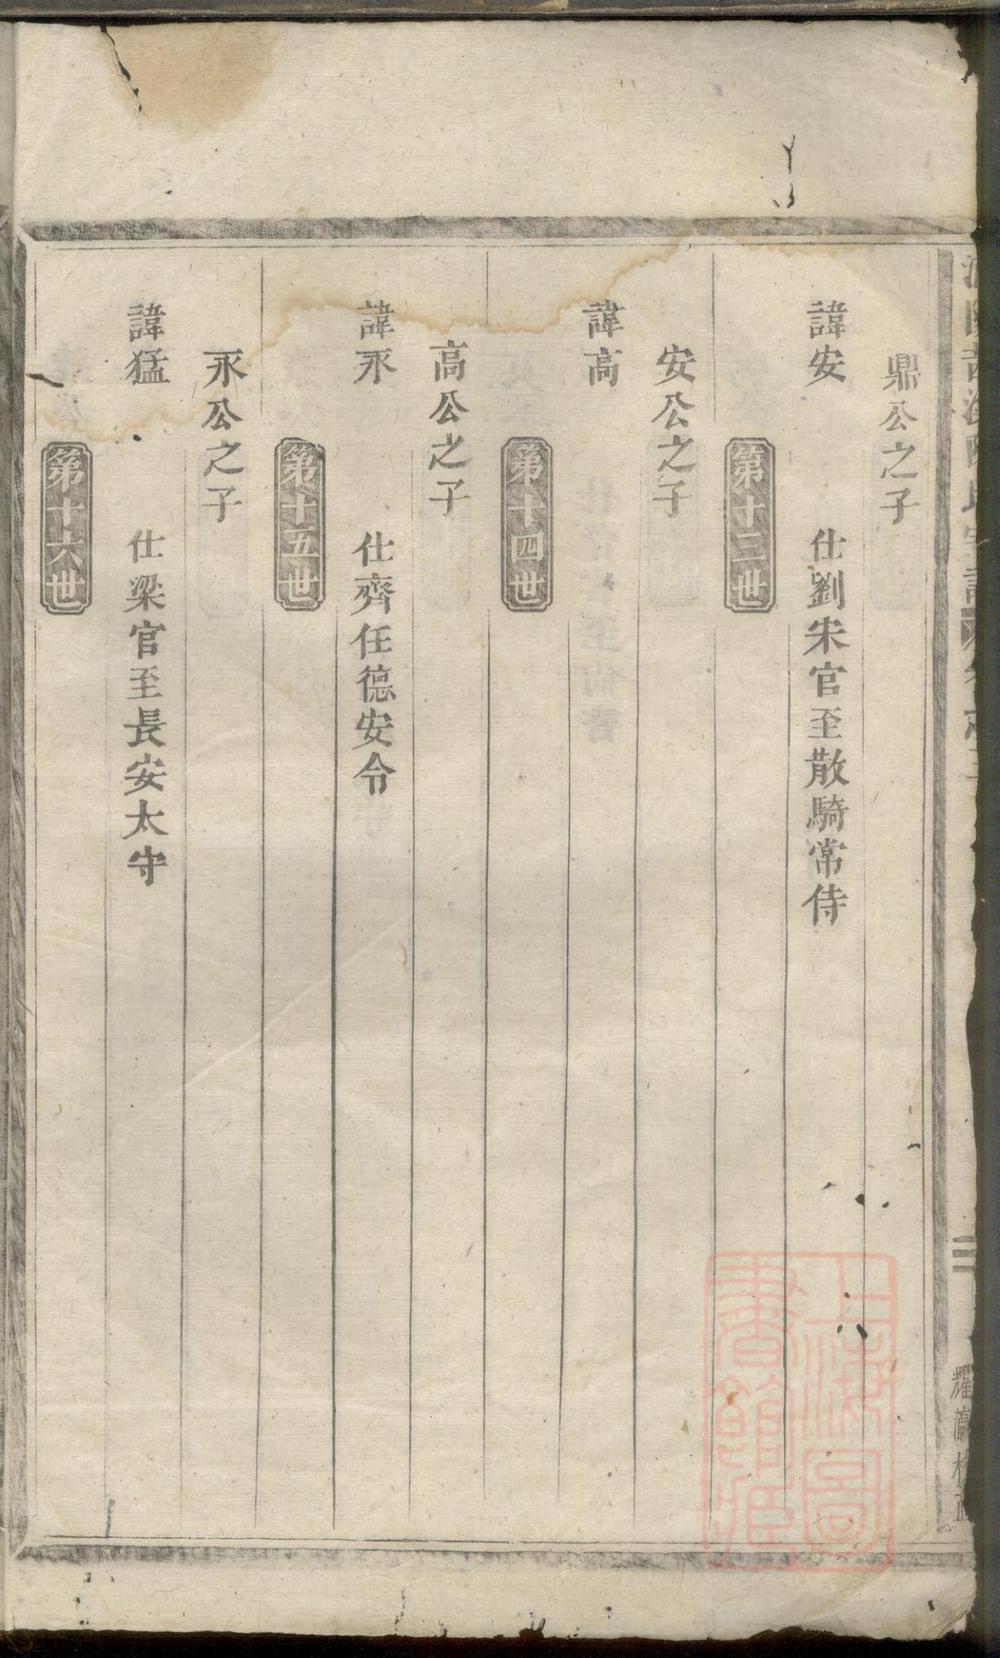 鼎公之子
諱安　仕劉宋官至散騎常侍
第十三世
安公之子
諱高
第十四世
高公之子
諱永　仕齊任德安令
第十五世
永公之子
諱猛　仕梁官至長安太守
第十六世
上海圖書館藏